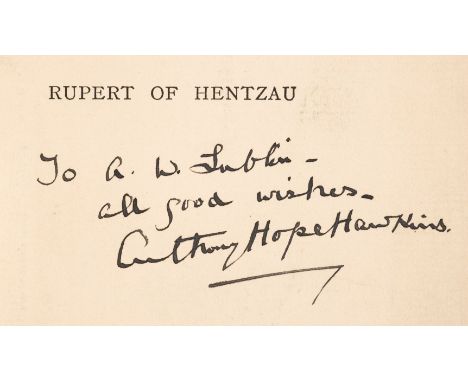 RUPERT OF HENTZAU
To A. W. Lublin -
all good wishes -
Anthony Hope Hawkins.